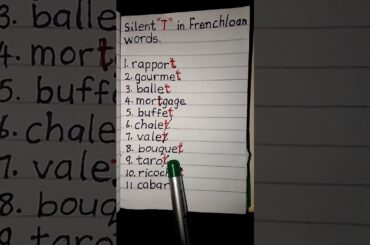 3. balle
4. mort
5. buff
6. chale
7. vale
8. bou
9. tarot
Silent "T" in French loan
words.
1. rapport
2. gourmet
3. ballet
4. mortgage
5. buffet
6. chalet
7. valet
8. bouquet
9. tarot
10.
11